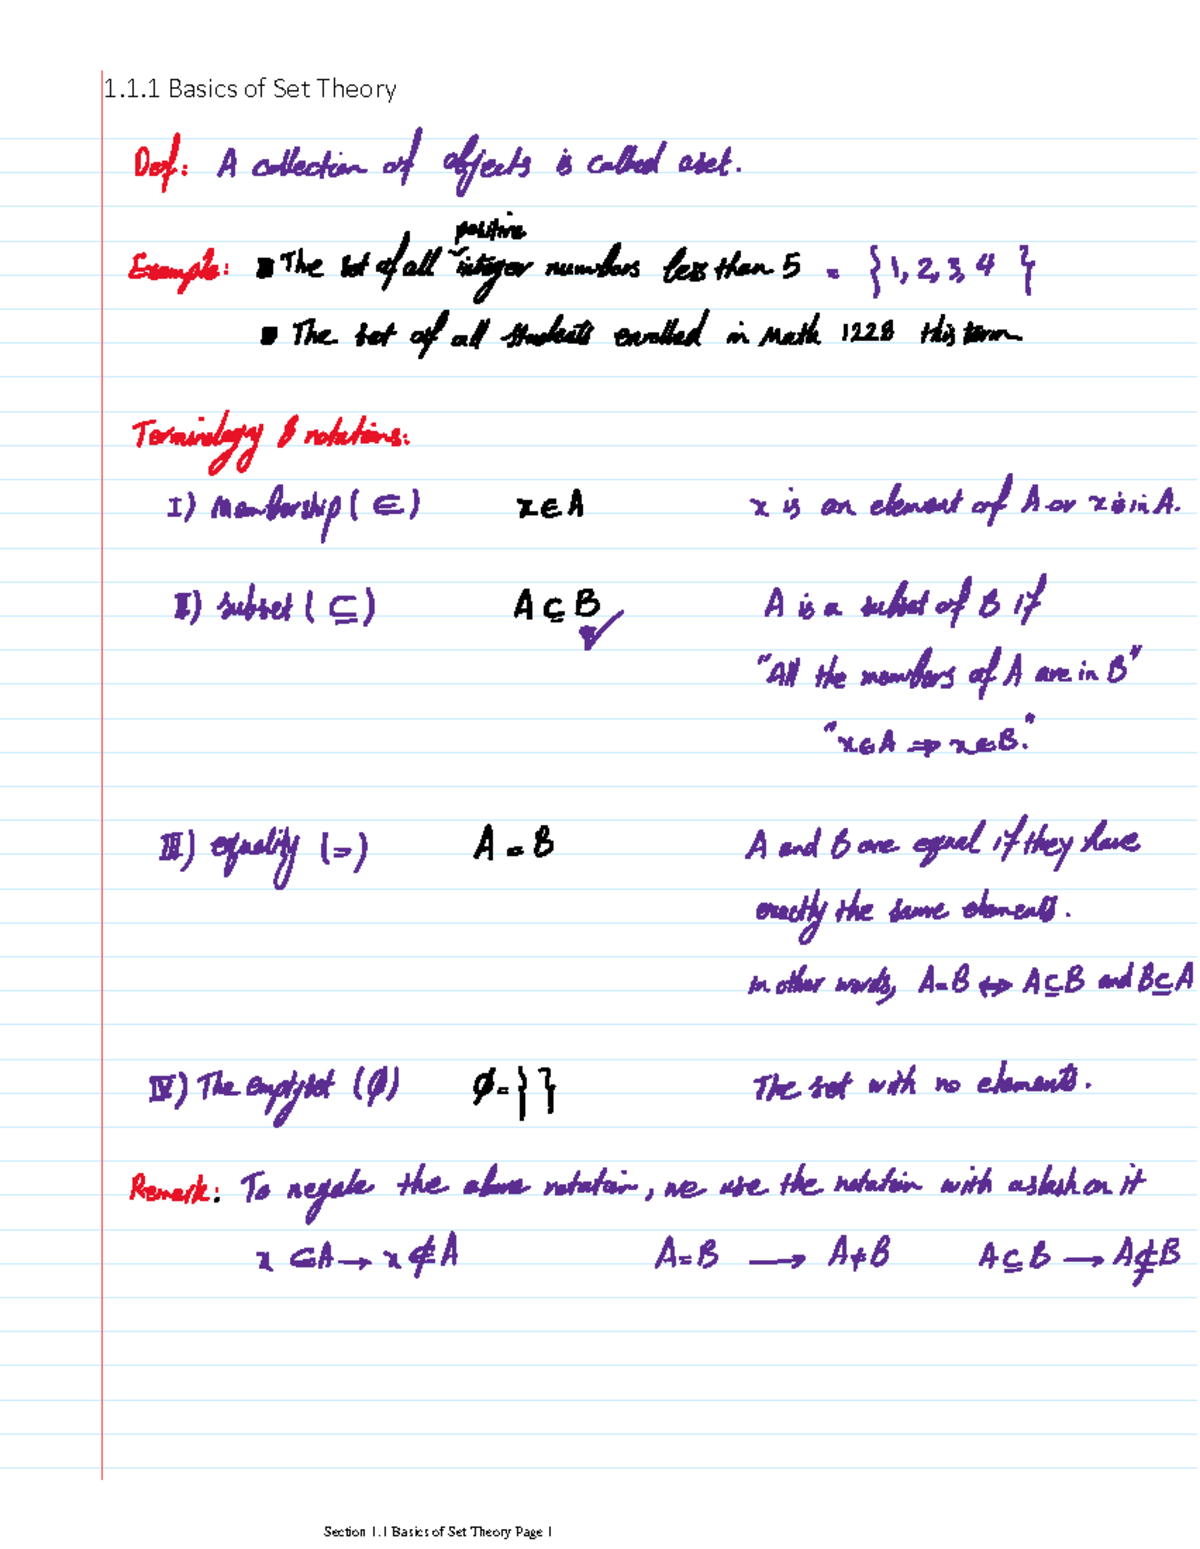 1.1.1 Basics of Set Theory
Def: A collection of objects is called a set.
positive
Example: ▪ The set of all integer numbers less than 5 = {1, 2, 3, 4 }
▪ The set of all students enrolled in Math 1228 this term
Terminology & notations:
I) Membership ( ∈ ) x ∈ A x is an element of A or x is in A.
II) subset ( ⊆ ) A ⊆ B A is a subset of B if
"All the members of A are in B"
"x ∈ A ⇒ x ∈ B."
III) equality (=) A = B A and B are equal if they have
exactly the same elements.
in other words, A=B ⇔ A ⊆ B and B ⊆ A
IV) The empty set (∅) ∅ = { } The set with no elements.
Remark: To negate the above notation, we use the notation with a slash on it
x ∈ A → x ∉ A A = B → A ≠ B A ⊆ B → A ⊈ B
Section 1.1 Basics of Set Theory Page 1